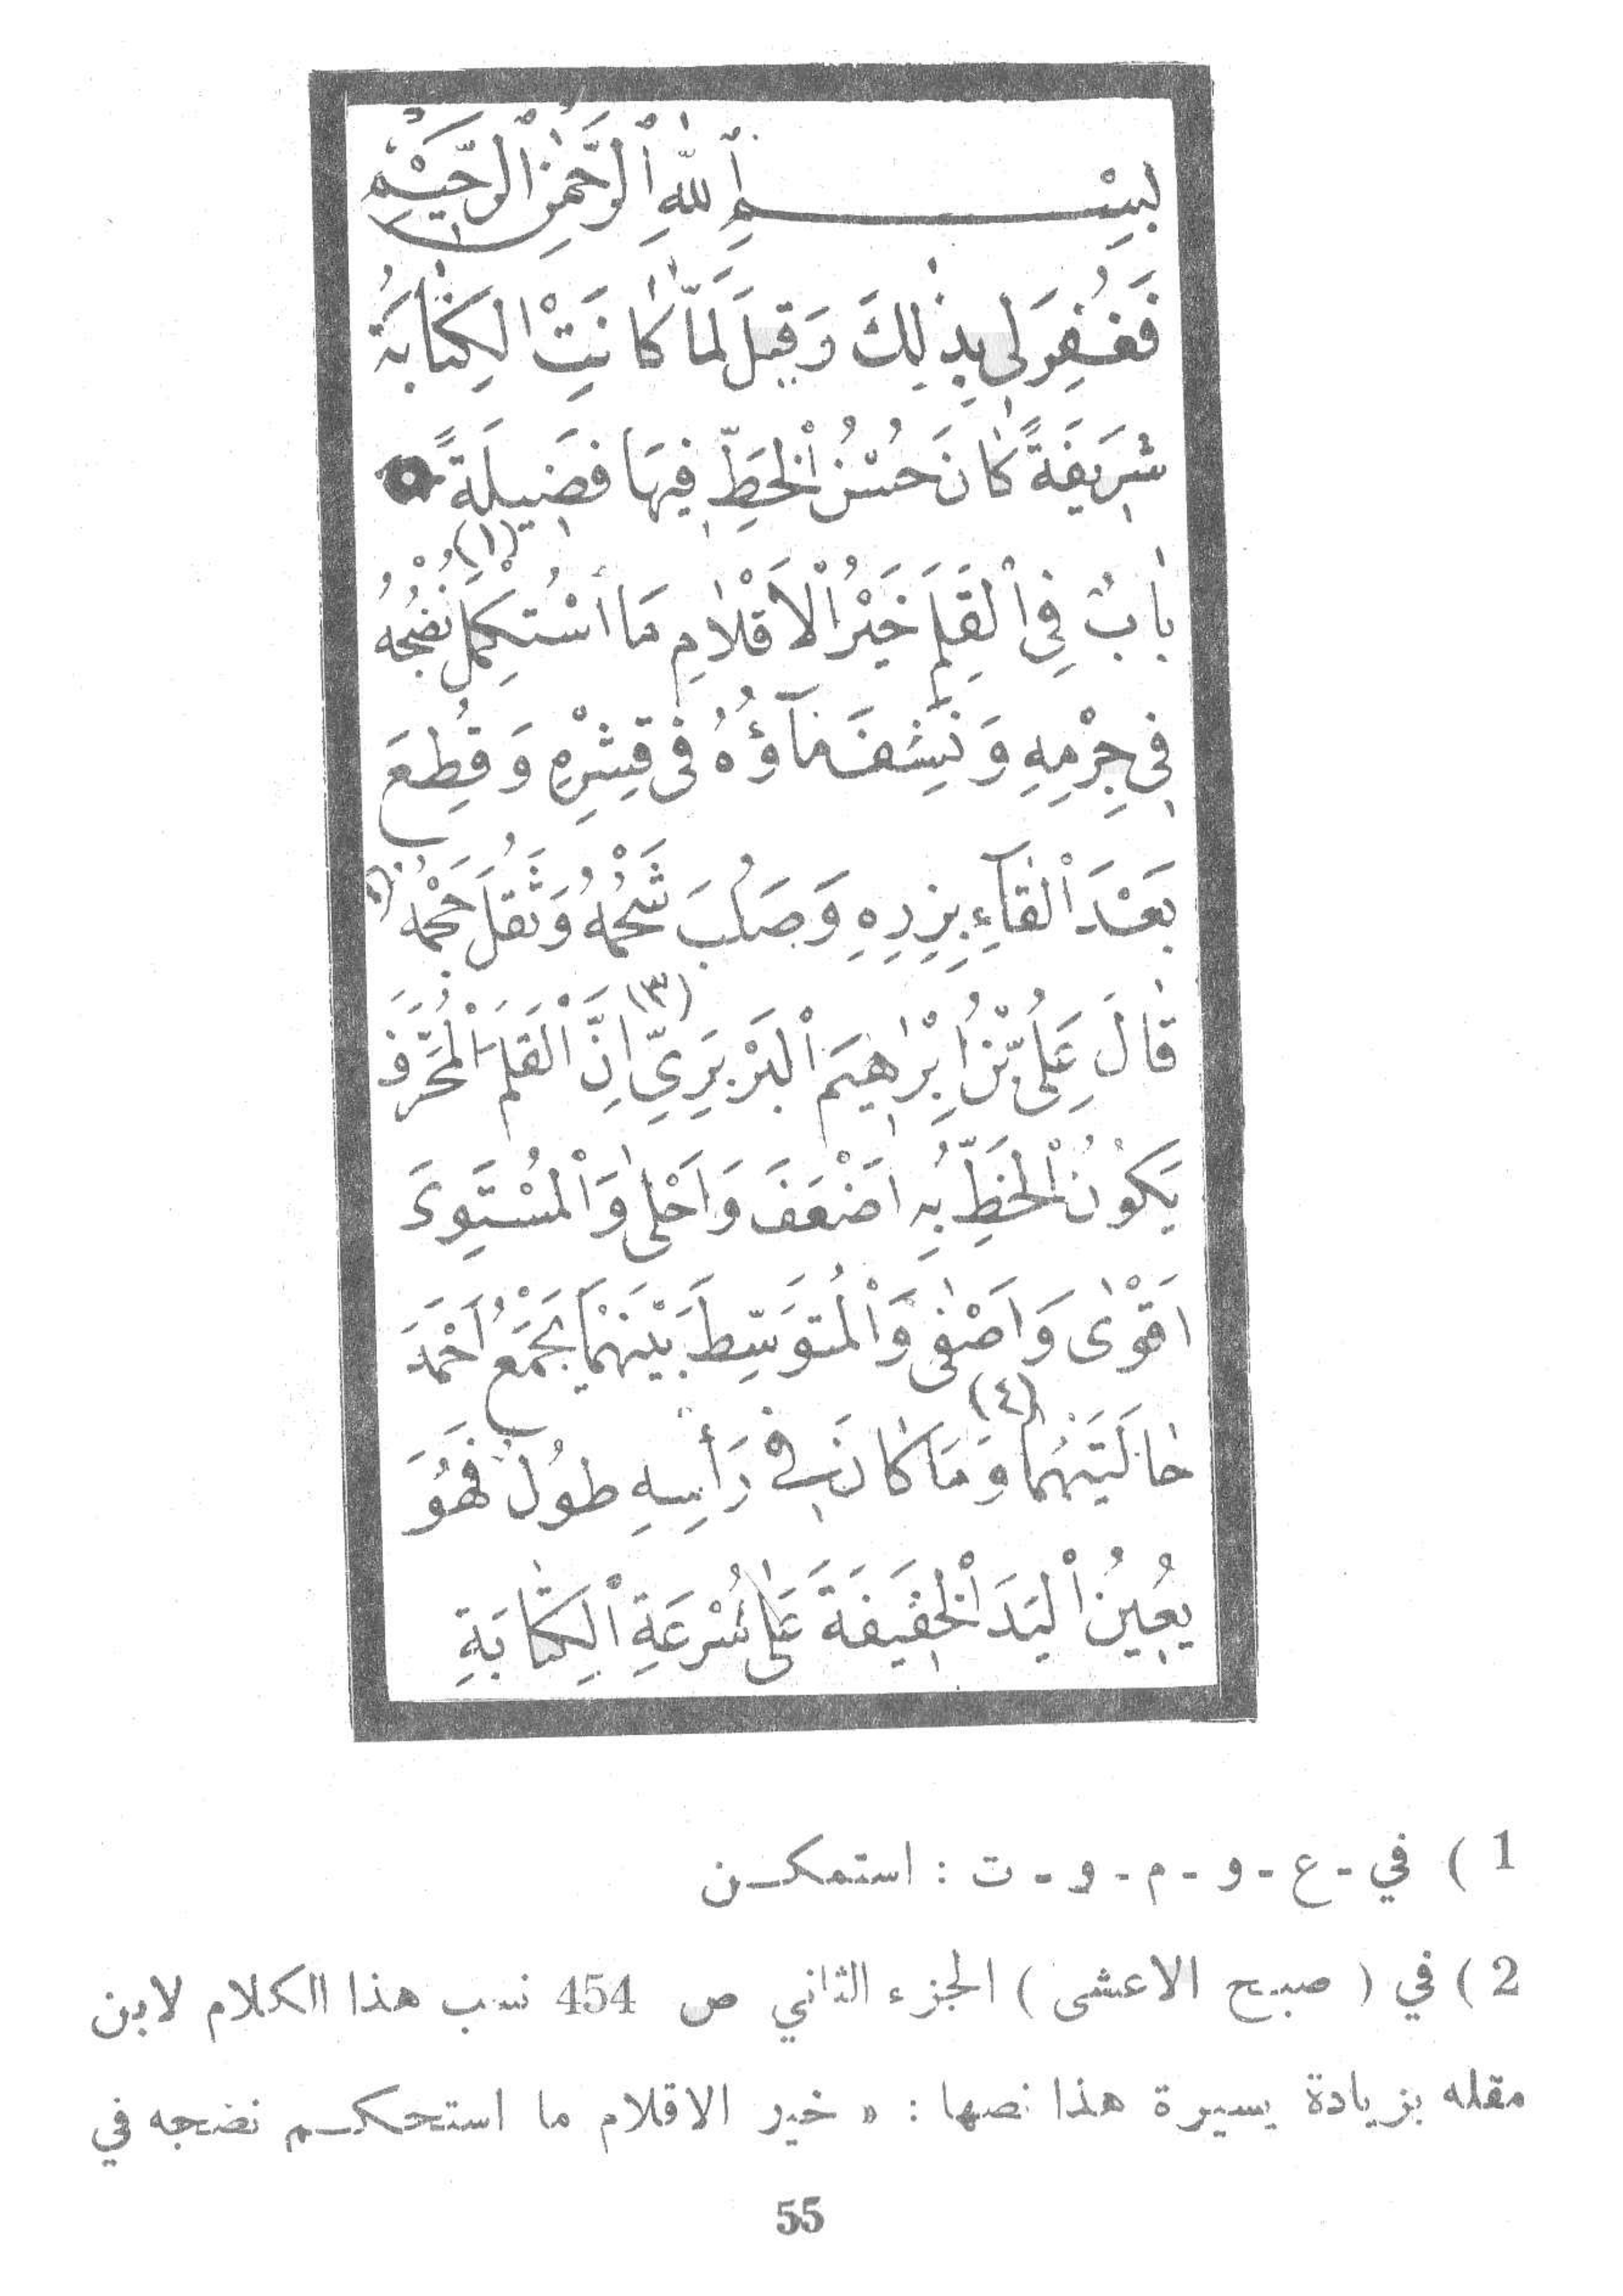 بِسْمِ اللّٰهِ الرَّحْمٰنِ الرَّحِيْمِ
فَغُفِرَ لِى بِذٰلِكَ وَقِيلَ لَمَّا كَانَتْ الْكِتَابَةُ
شَرِيفَةً كَانَ حُسْنُ الْخَطِّ فِيهَا فَضِيلَةً
بَابٌ فِى الْقَلَمِ خَيْرُ الْاَقْلَامِ مَا اسْتُكْمِلَ (١) نُضْجُهُ
فِى جِرْمِهِ وَنَشِفَ مَآؤُهُ فِى قِشْرِهِ وَقُطِعَ
بَعْدَ اِلْقَآءِ بِزْرِهِ وَصَلُبَ شَحْمُهُ وَثَقُلَ حَجْمُهُ
قَالَ عَلِىُّ بْنُ اِبْرٰهِيمَ الْبَرْبَرِيِّ (٣) اِنَّ الْقَلَمَ الْمُحَرَّفَ
يَكُوْنُ الْخَطُّ بِهِ اَضْعَفَ وَاَحْلٰى وَالْمُسْتَوِىَ
اَقْوٰى وَاَصْفٰى وَالْمُتَوَسِّطَ بَيْنَهُمَا يَجْمَعُ اَحَدَ
حَالَتَيْهُمَا (٤) وَمَا كَانَ فِى رَأْسِهِ طُولٌ فَهُوَ
يُعِينُ الْيَدَ الْخَفِيفَةَ عَلٰى سُرْعَةِ الْكِتَابَةِ
1 ) في - ع - و - م - و - ت : استمكن
2 ) في ( صبح الاعشى ) الجزء الثاني ص 454 نسب هذا الكلام لابن
مقله بزيادة يسيرة هذا نصها : « خير الاقلام ما استحكم نضجه في
55